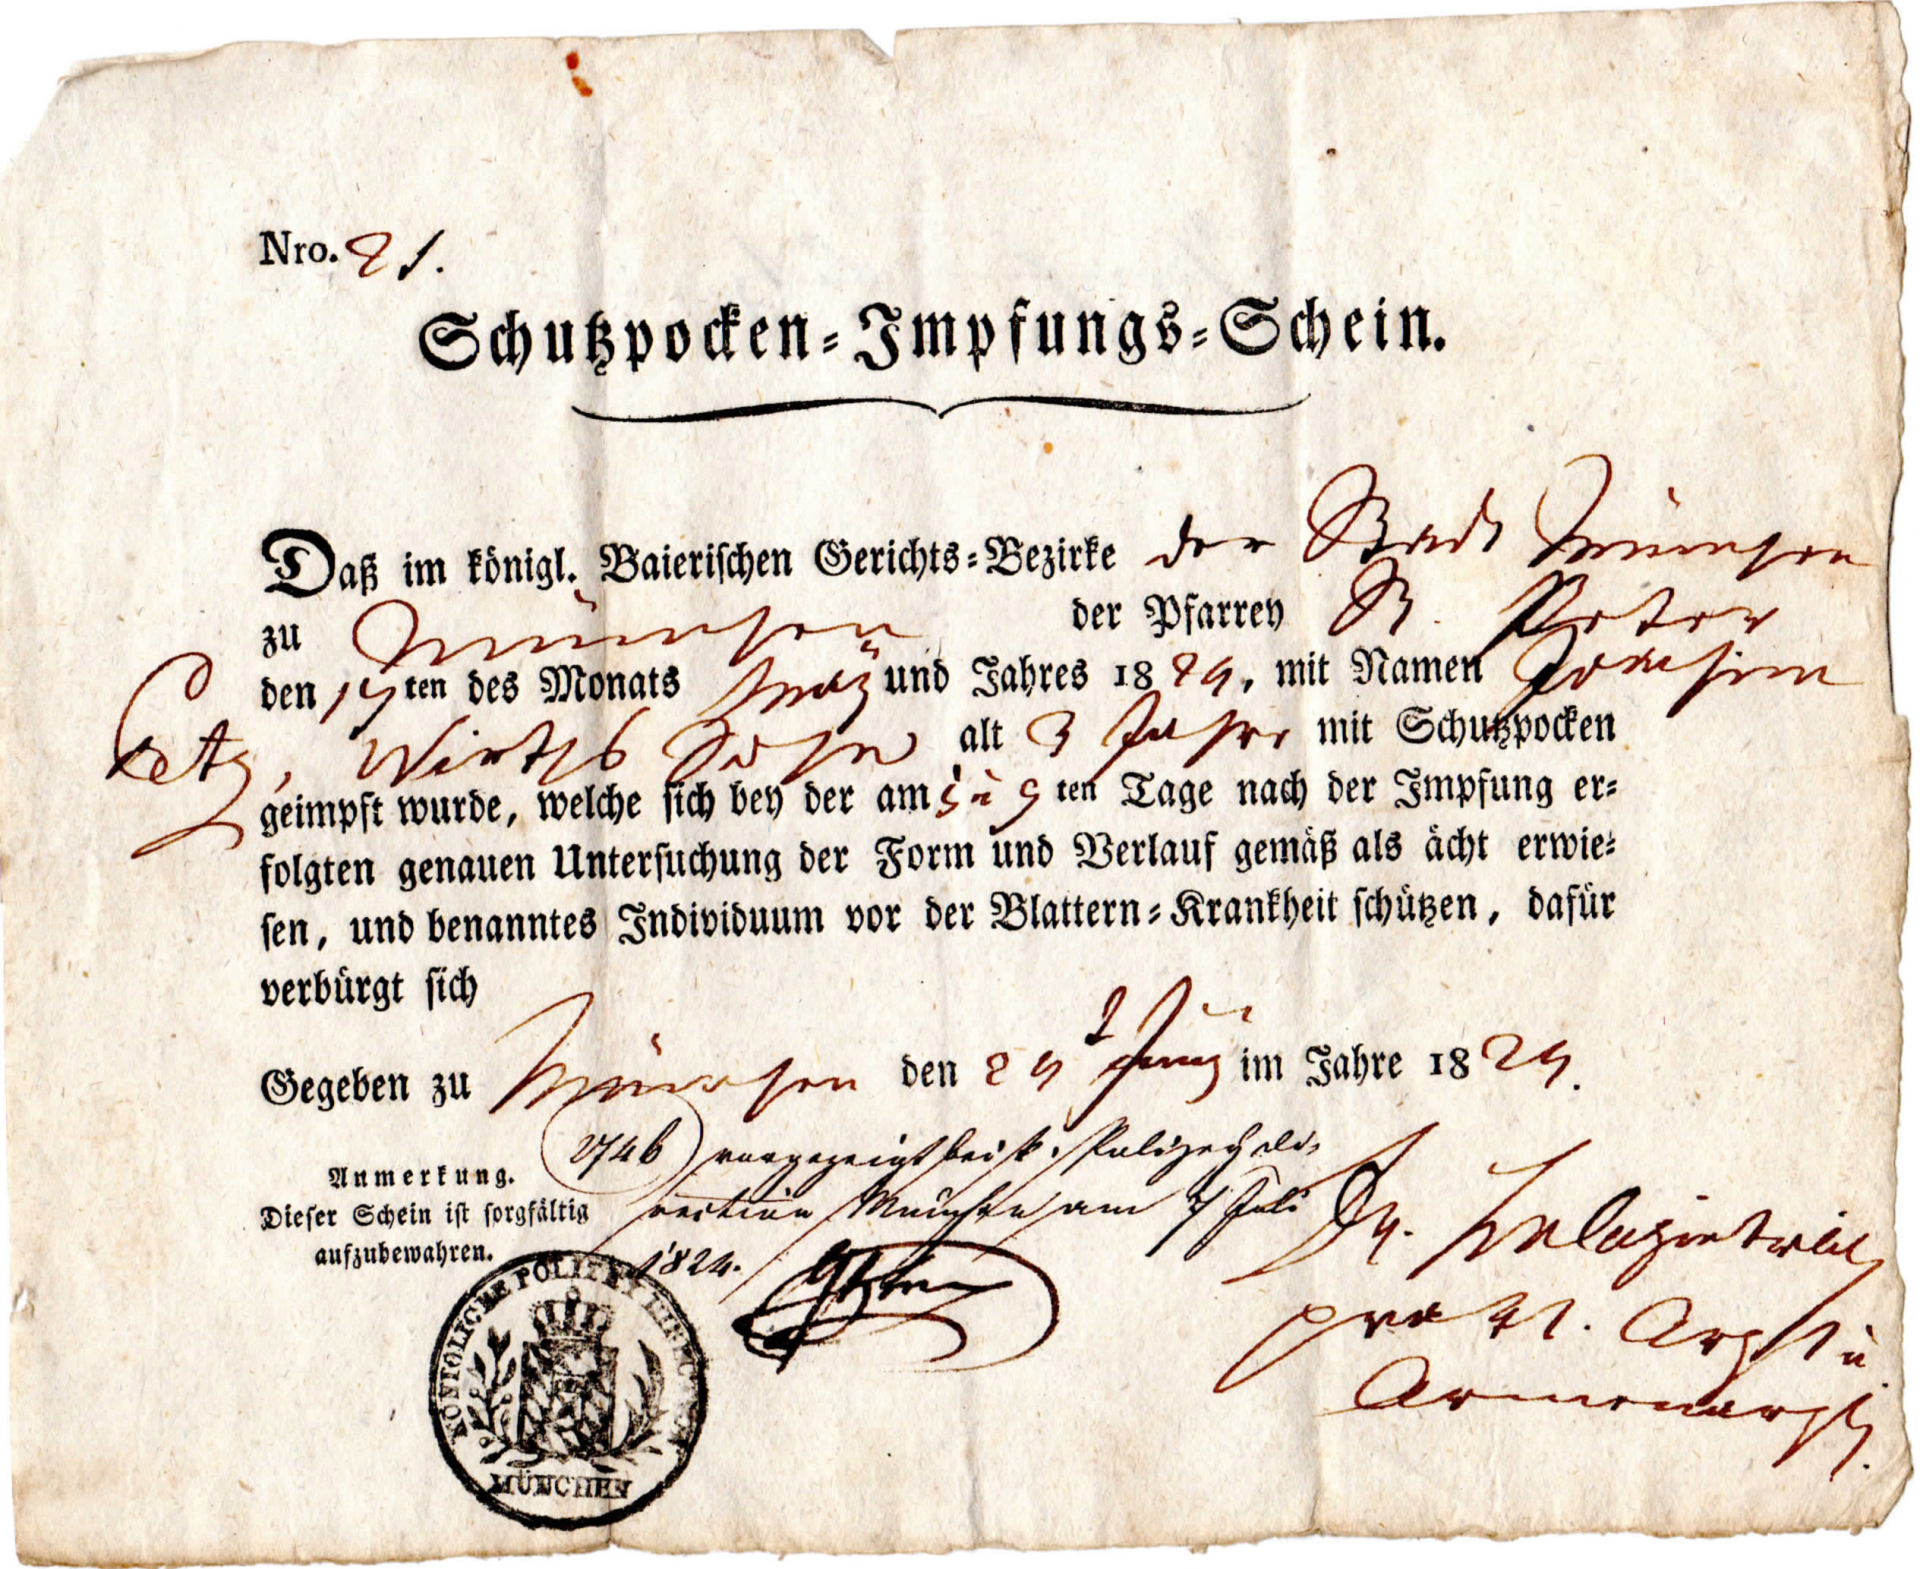 Nro. 21.
Schutzpocken-Impfungs-Schein.
Daß im königl. Baierischen Gerichts-Bezirke der Stadt München
zu München der Pfarrey St. Peter
den 17ten des Monats März und Jahres 1824, mit Namen Joachim
, Wirths Sohn alt 3 Jahre mit Schutzpocken
geimpft wurde, welche sich bey der am 5 u 9ten Tage nach der Impfung er-
folgten genauen Untersuchung der Form und Verlauf gemäß als ächt erwie-
sen, und benanntes Individuum vor der Blattern-Krankheit schützen, dafür
verbürgt sich
Gegeben zu München den 24 im Jahre 1824.
2746 vorgezeigt bei k. Polizey di-
rection München am 7 Juli
1824.
Anmerkung.
Dieser Schein ist sorgfältig
aufzubewahren.
Dr.
prakt. Arzt u
Armenarzt.
KÖNIGLICHE POLIZEY DIRECTION
MÜNCHEN